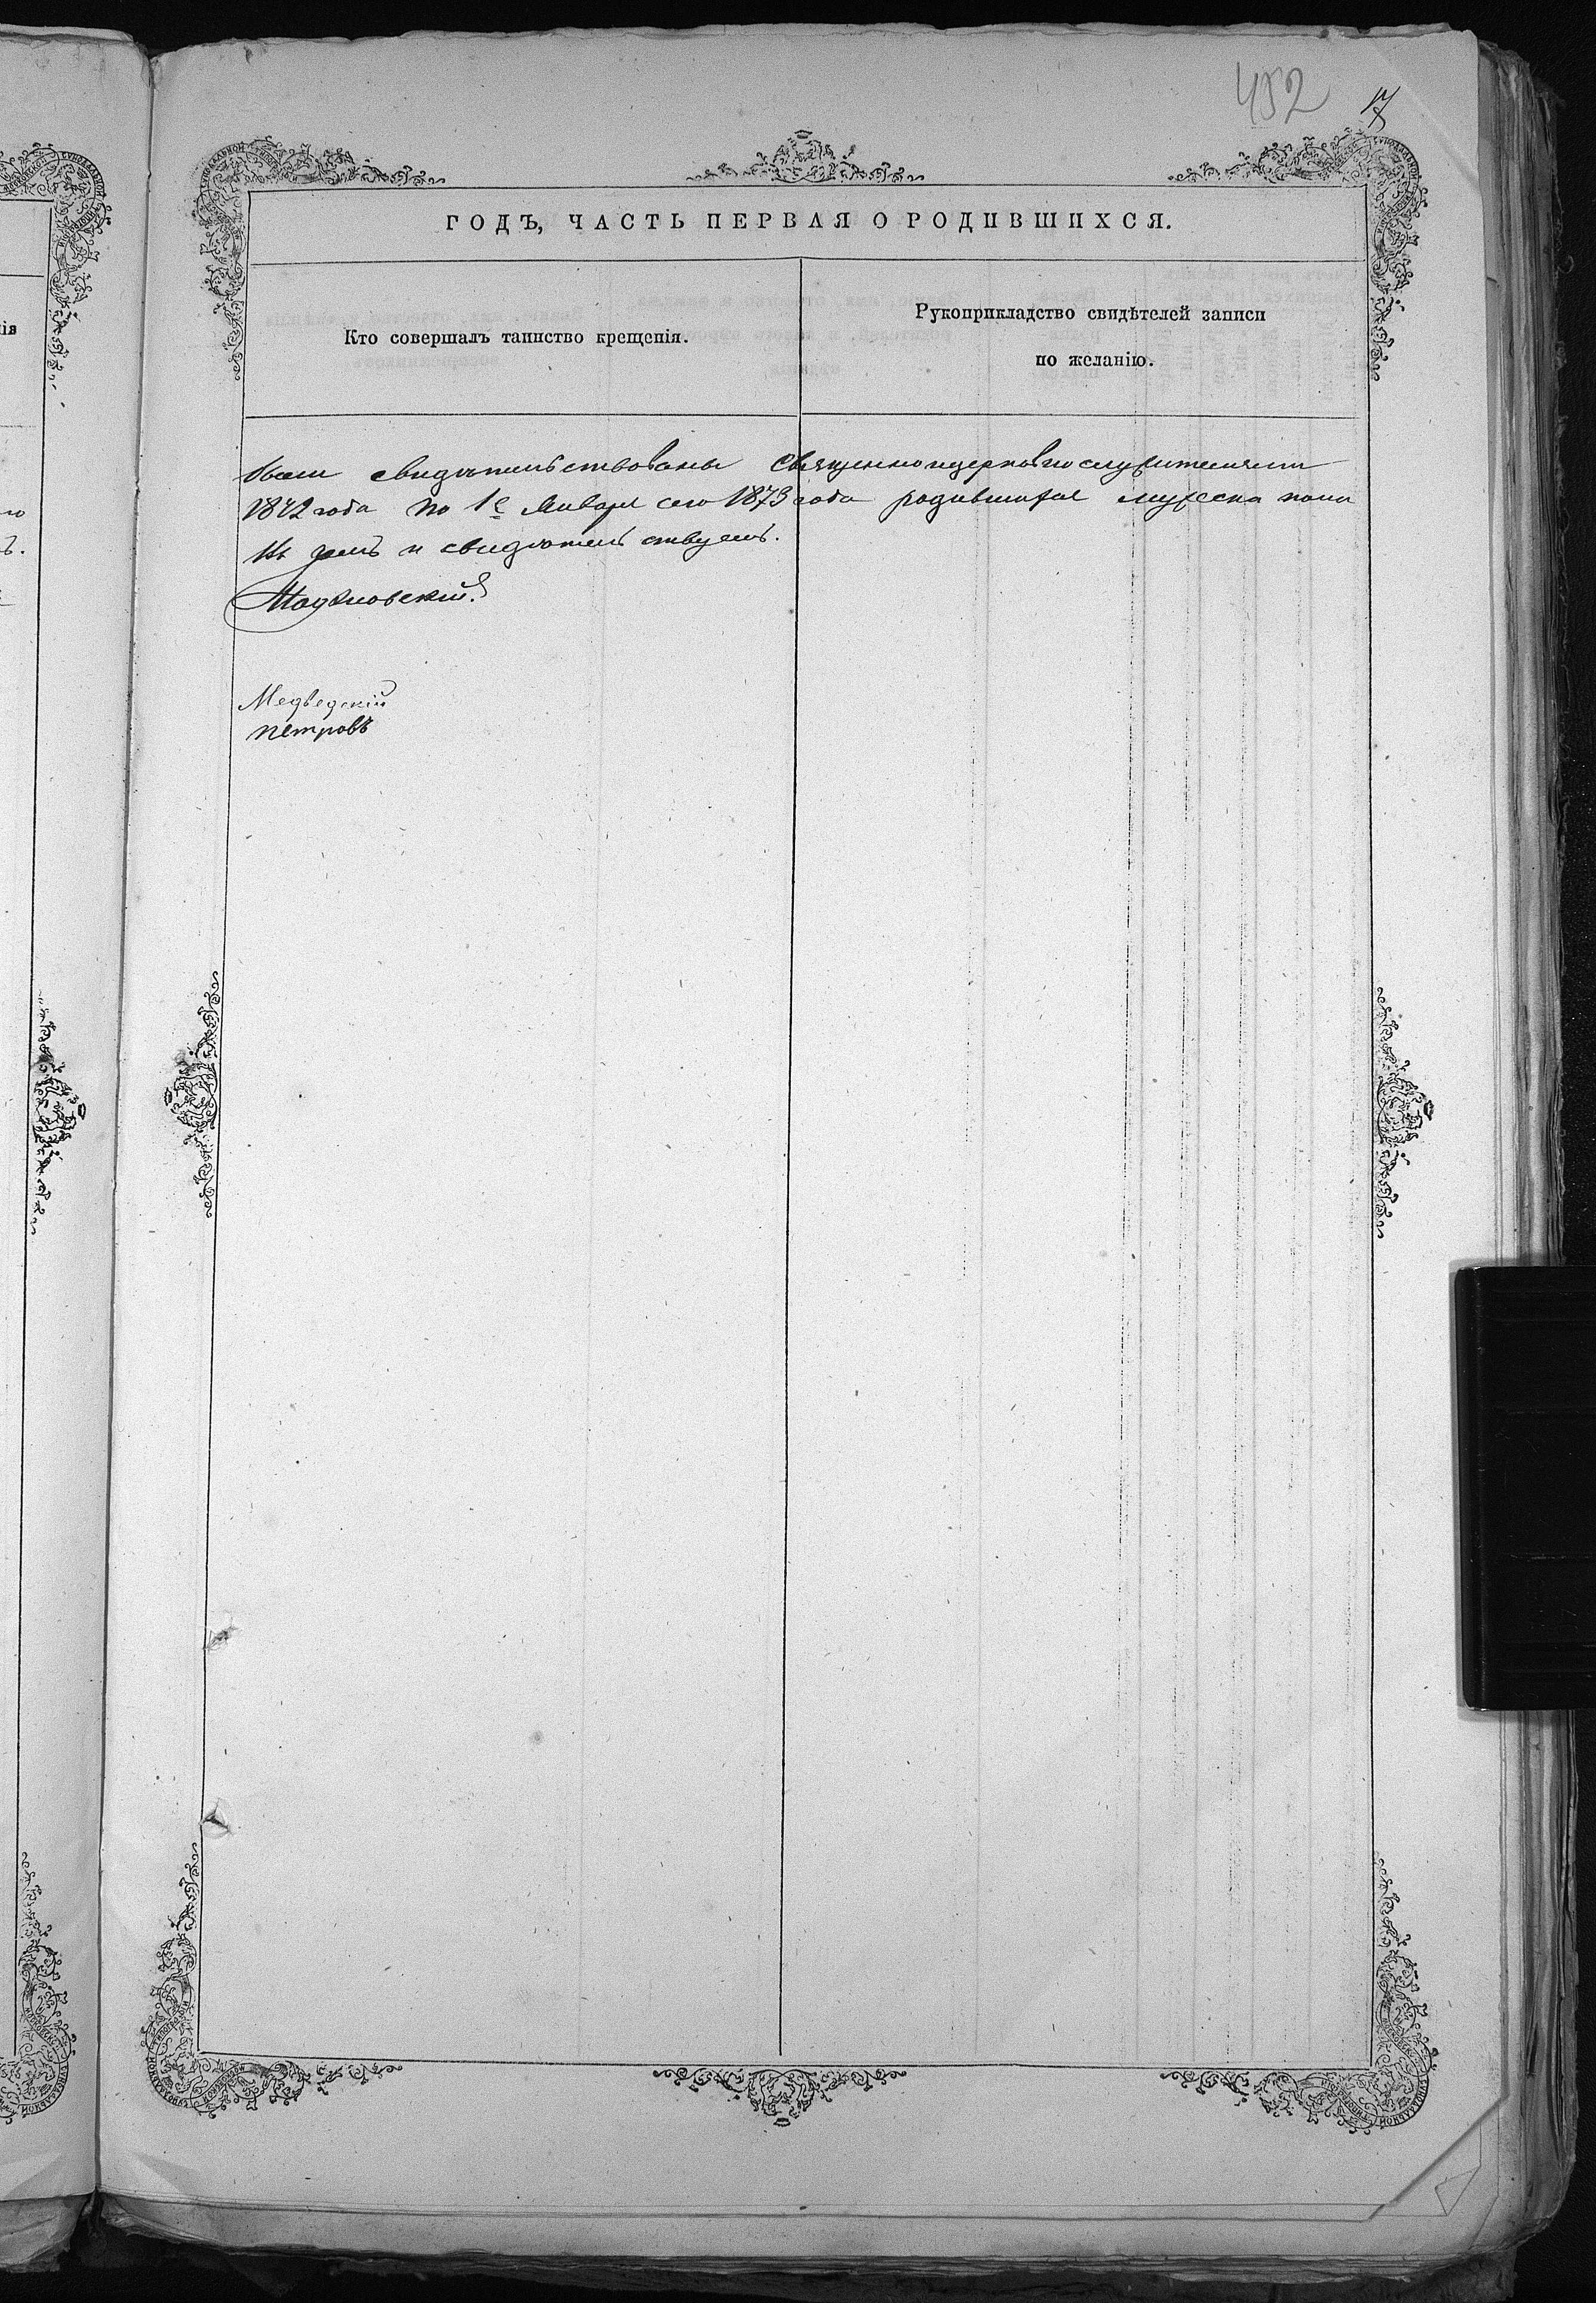 452 17
ГОДЪ, ЧАСТЬ ПЕРВАЯ О РОДИВШИХСЯ.
Кто совершалъ таинство крещенія.
Рукоприкладство свидѣтелей записи
по желанію.
были свидѣтельствованы Священноцерковнослужителями
1872 года по 1е Января сего 1873 года родившихся мужеска пола
въ чемъ и свидѣтельствуемъ.
Медвѣдскій
петровъ